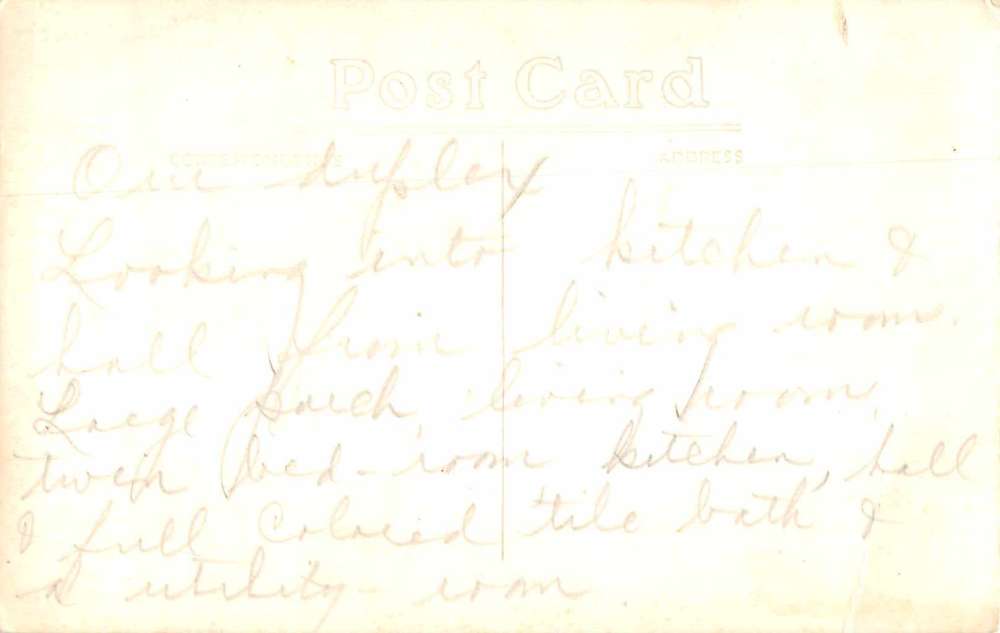 Post Card
CORRESPONDENCE ADDRESS
Our duplex
Looking into kitchen &
hall from living room.
Large porch, living room,
twin bed-room kitchen, hall
& full colored tile bath &
a utility-room.